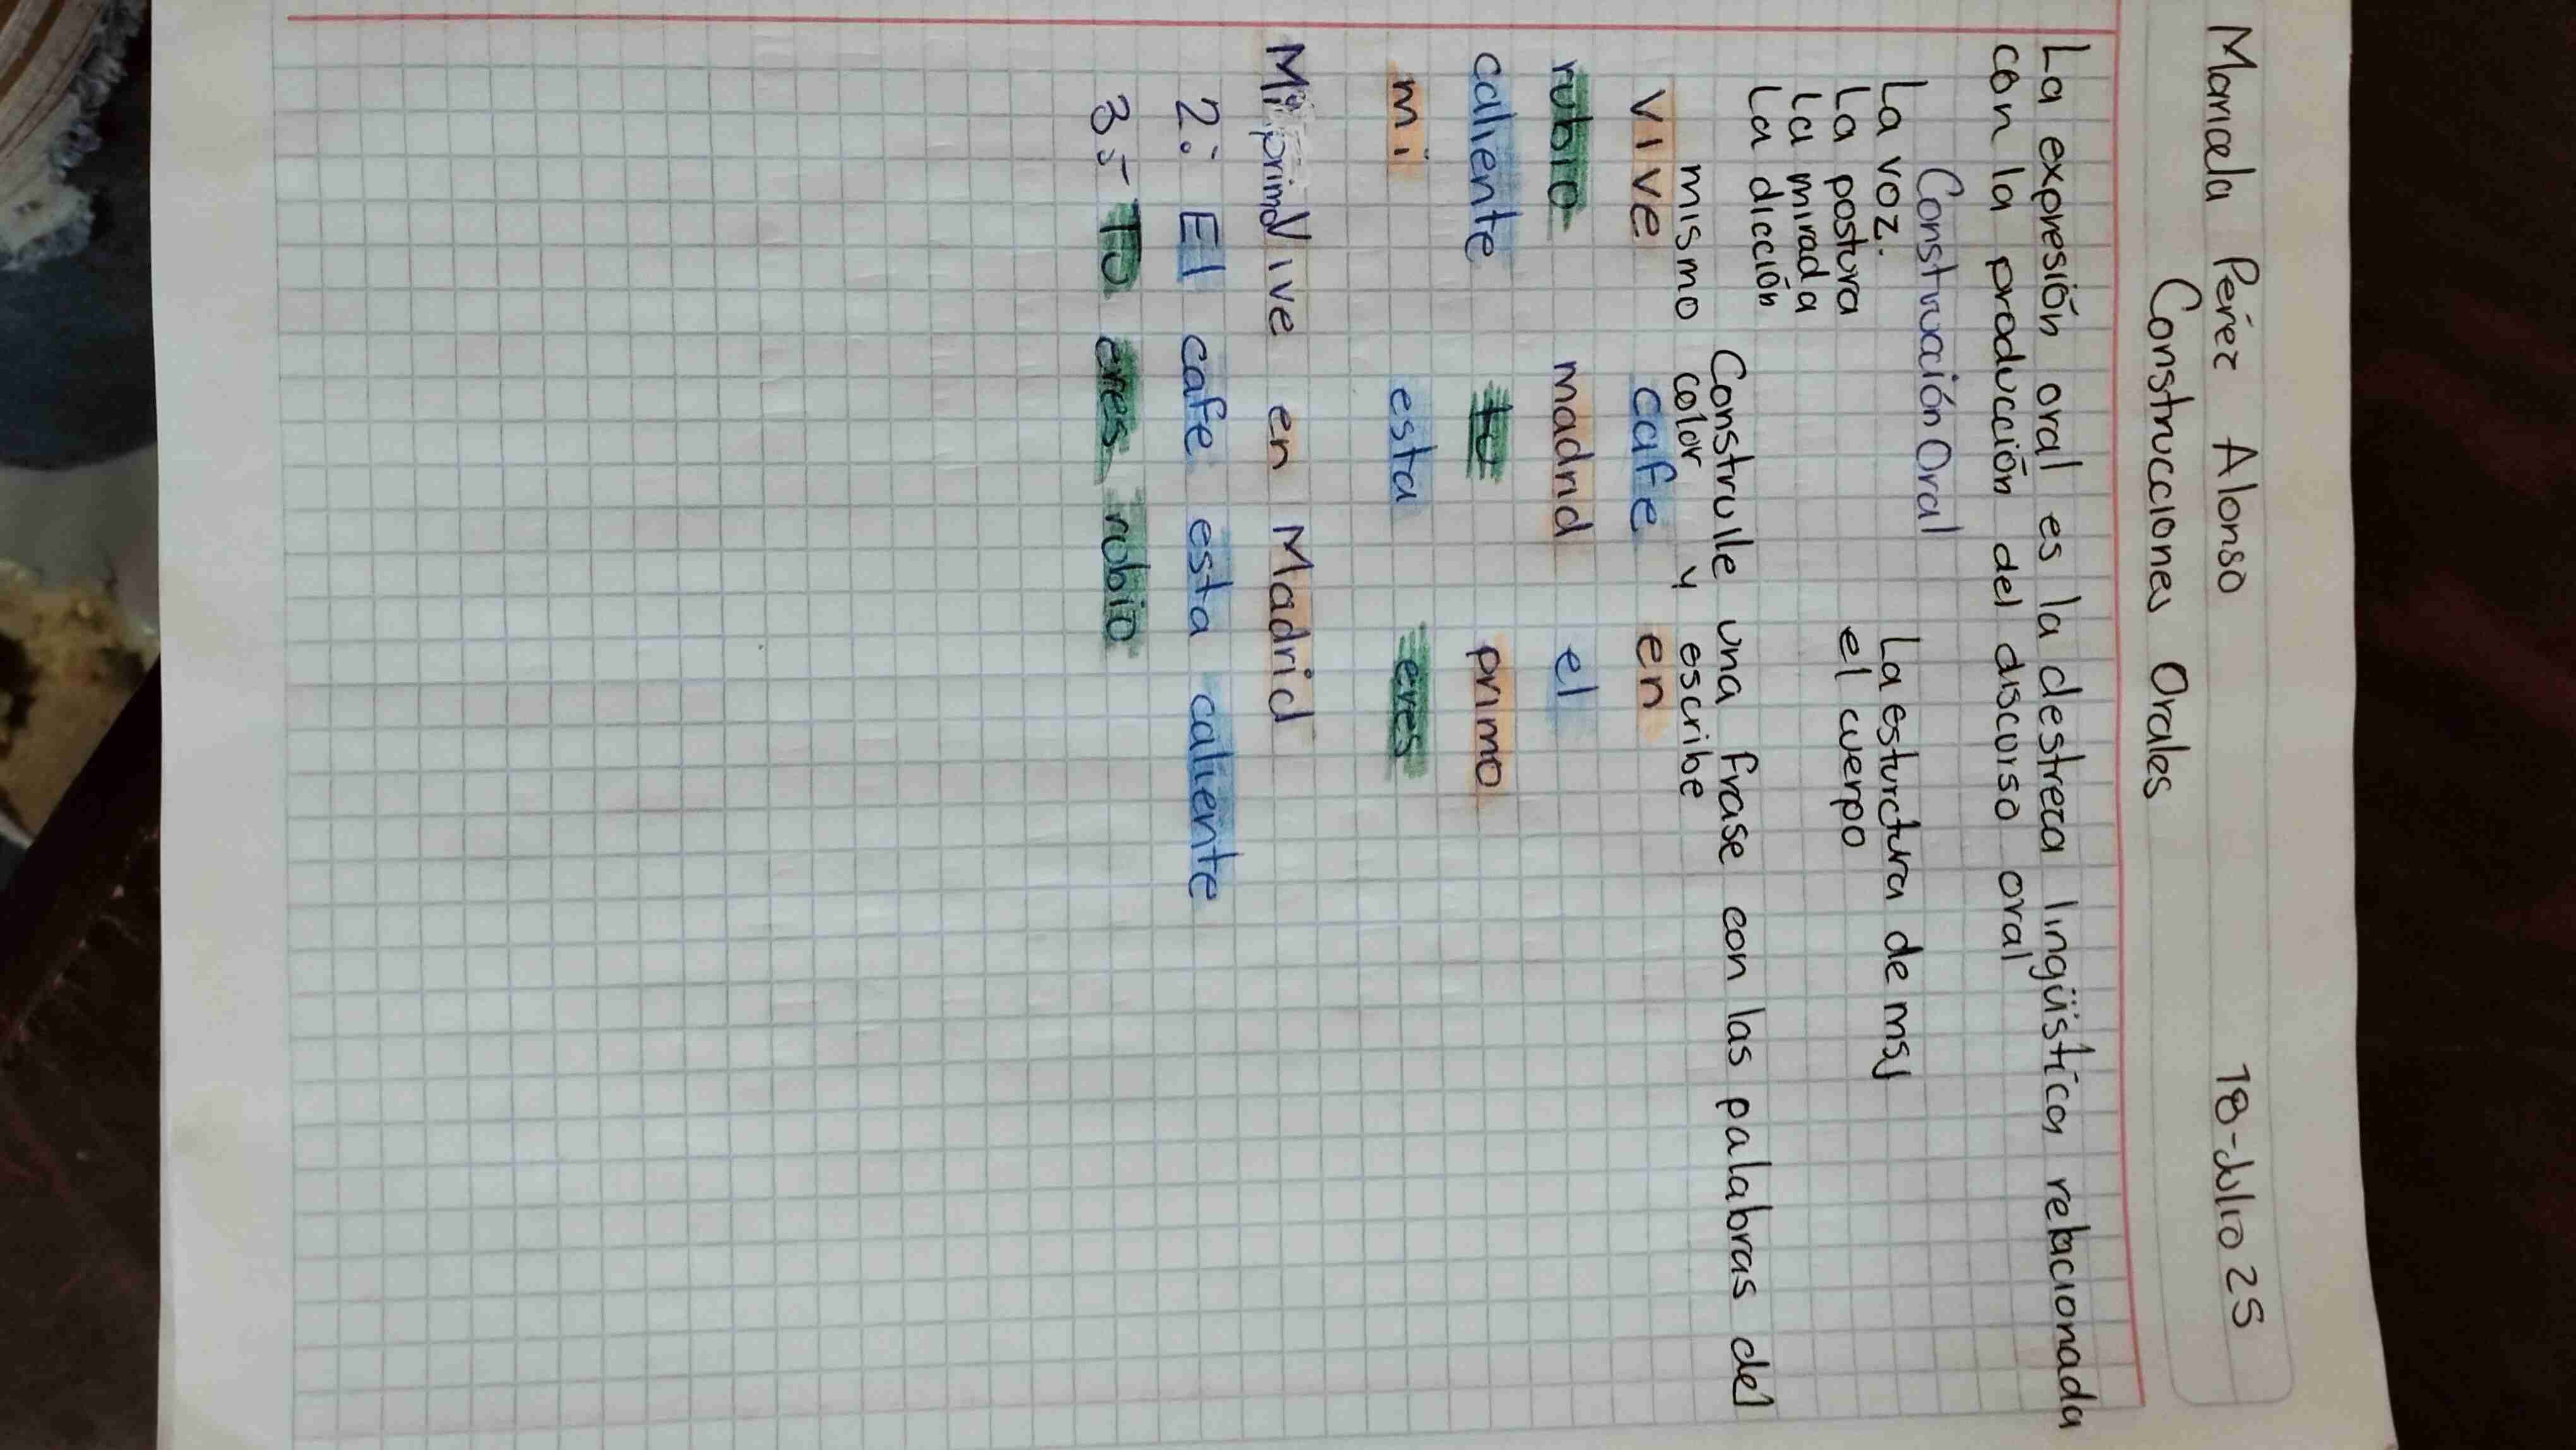 Mariela Peréz Alonso 18-Julio 25
Construcciones Orales
La expresión oral es la destreza lingüística relacionada
con la producción del discurso oral
Construcción Oral
La voz. La esturctura de msj
La postura el cuerpo
La mirada
La dicción
Construlle una frase con las palabras del
mismo color y escribe
vive cafe en
rubio madrid el
caliente tu primo
mi esta eres
Mi primo Vive en Madrid
2: El cafe esta caliente
3- TU eres rubio